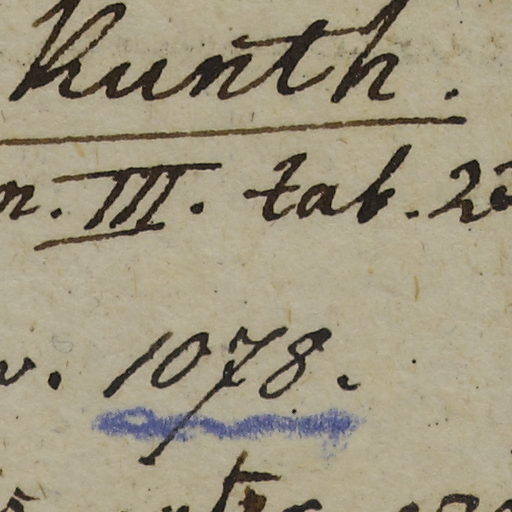 Kunth.
III. tab. 2
1078.